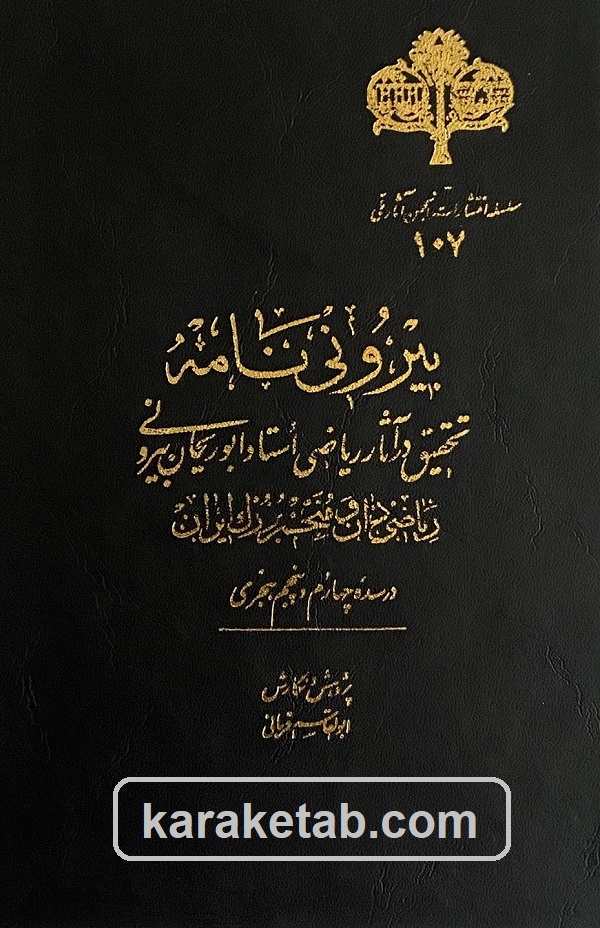 سلسله انتشارات انجمن آثار ملی
۱۰۷
بیرونی نامه
تحقیق در آثار ریاضی استاد ابوریحان بیرونی
ریاضی‌دان و منجم بزرگ ایران
در سده چهارم و پنجم هجری
پژوهش و نگارش
ابوالقاسم قربانی
karaketab.com